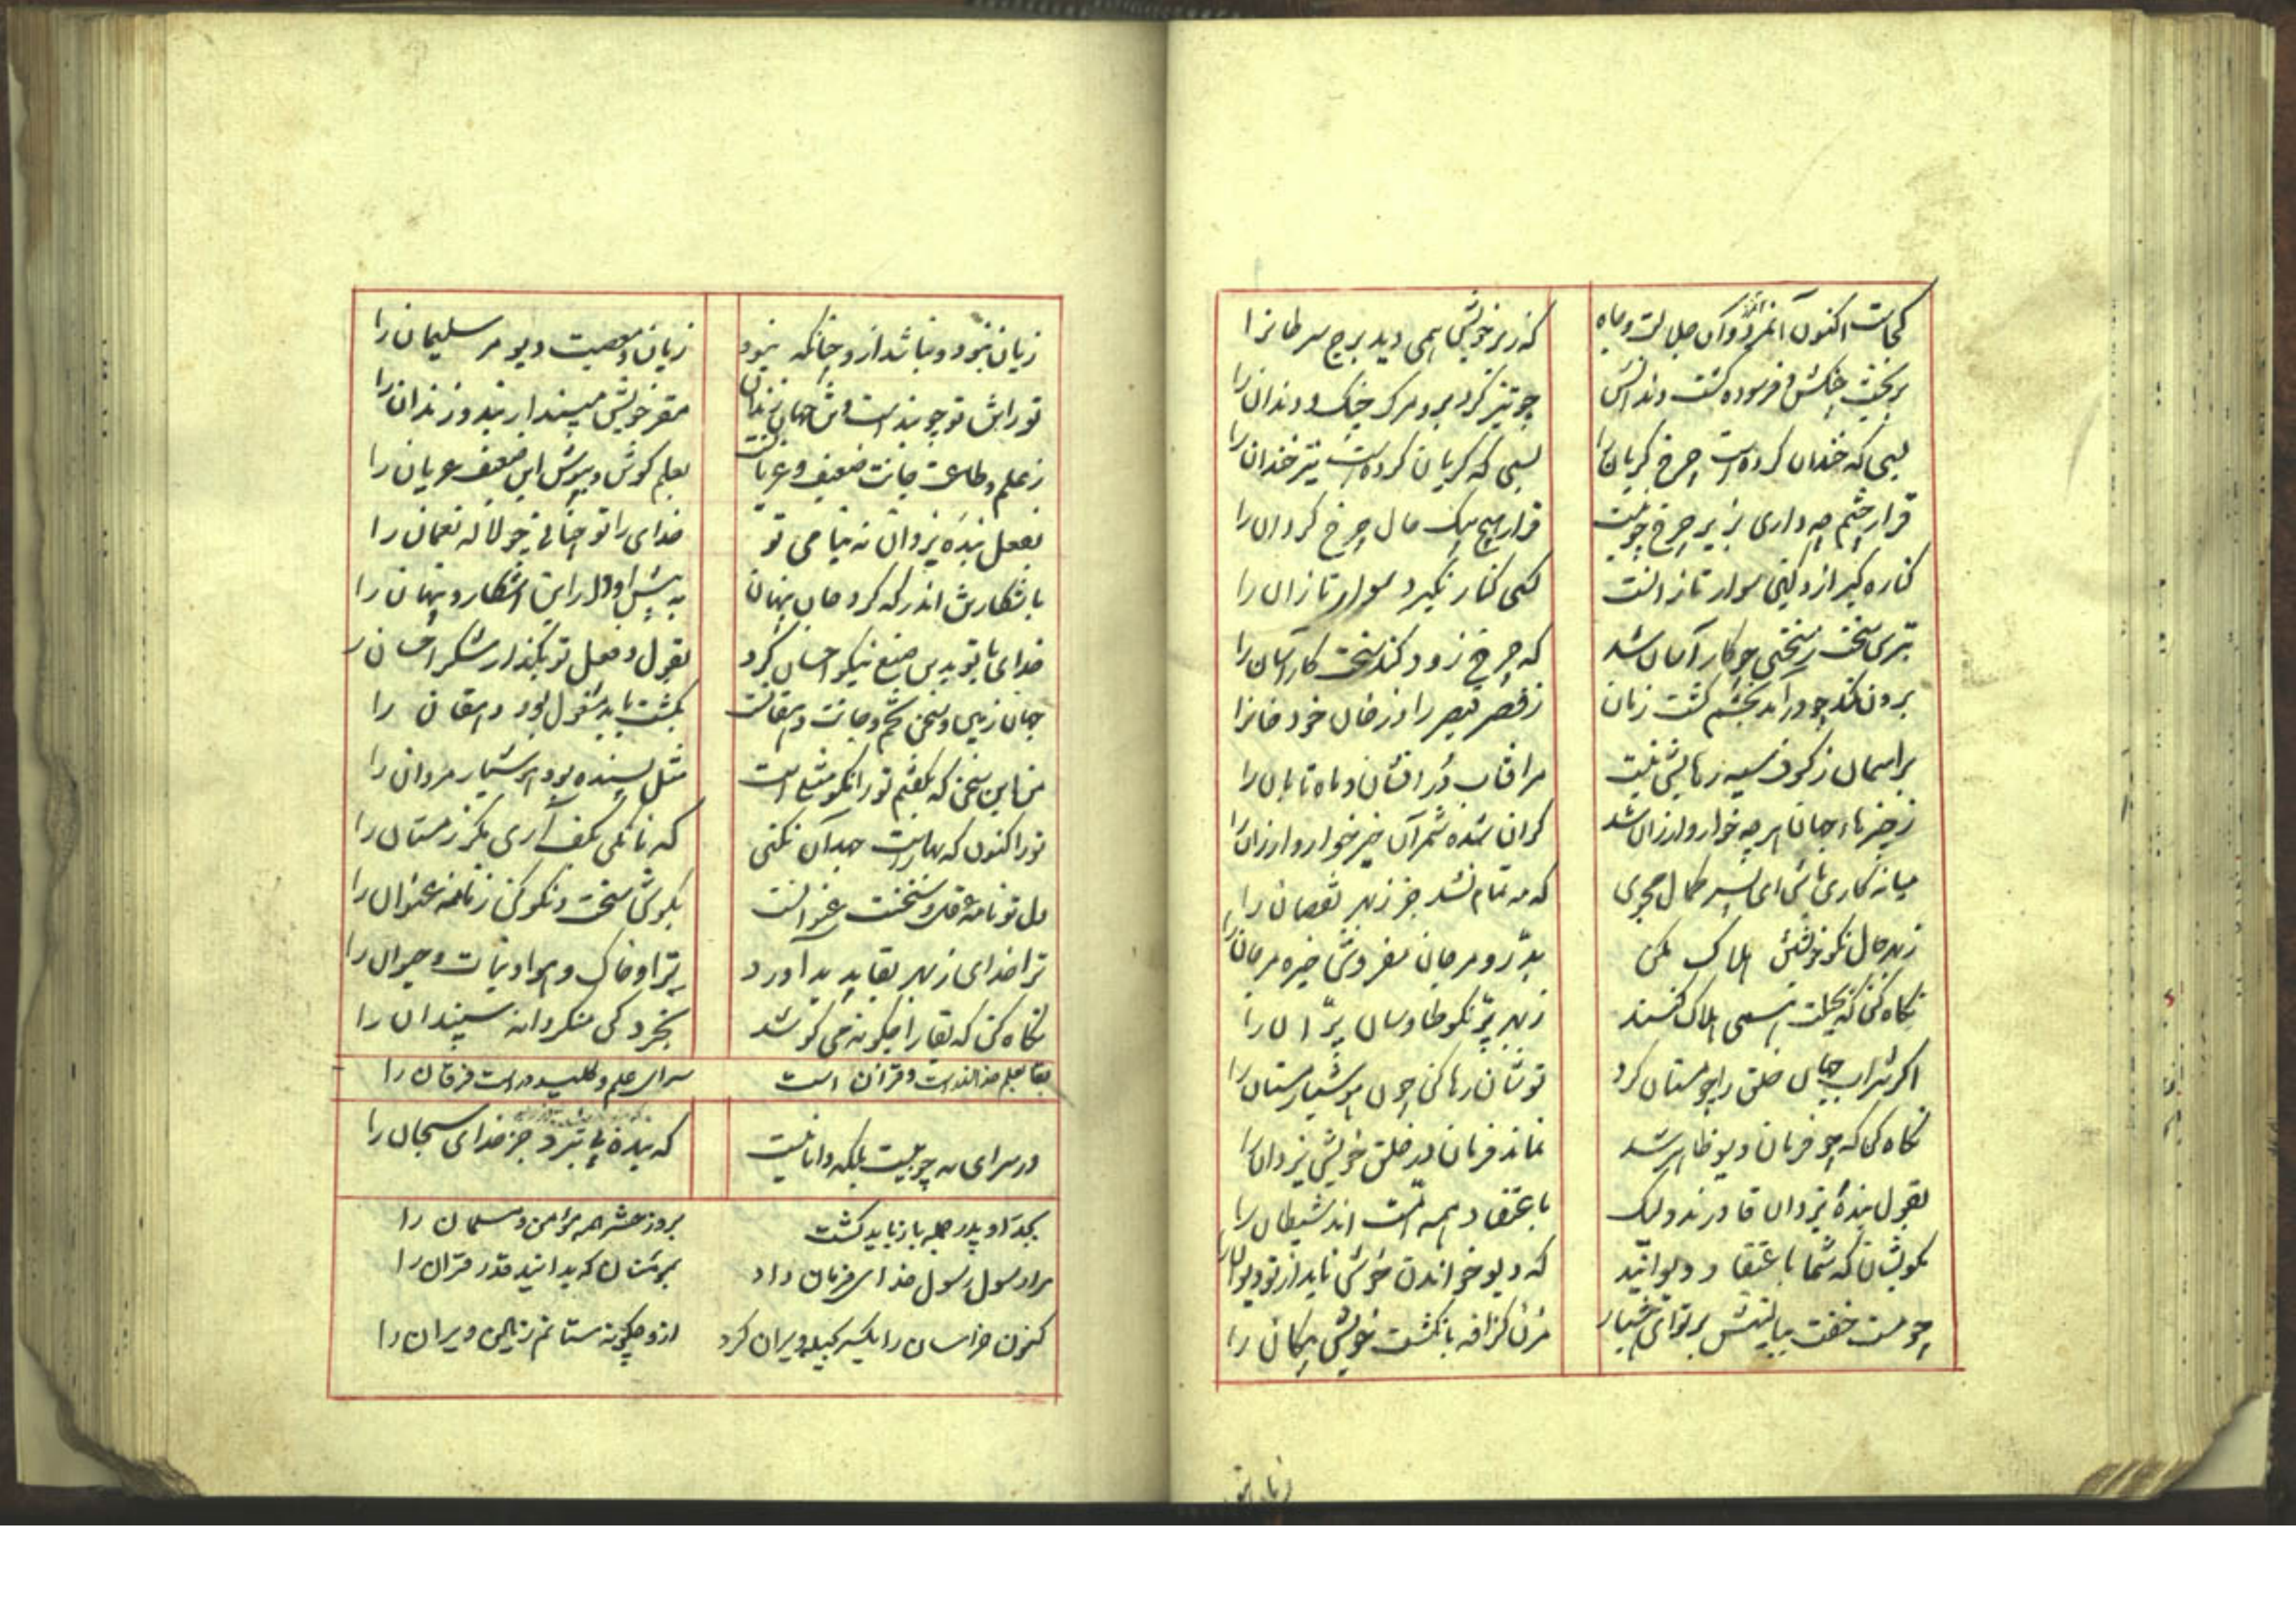 کجاست اکنون آنمرد و آن جلالت و جاه
که زیر خویش همی دید برج سرطانرا
بریخت چنگش و فرسوده گشت دندانش
چو تیز کرد برو مرگ چنگ و دندان را
بسی که خندان کرده است چرخ گریان را
بسی که گریان کرده است نیز خندان را
قرار چشم چه داری بزیر چرخ چو نیست
قرار هیچ بیک حال چرخ گردان را
کناره گیر ازو کین سوار تازانست
کسی کنار نگیرد سوار تازان را
بترس سخت ز سختی چو کار آسان شد
که چرخ زود کند سخت کار آسان را
برون کند چو درآید بخشم گشت زمان
ز قصر قیصر را و ز خان خود خانرا
بر آسمان ز کسوف سیه رهایش نیست
مر آفتاب درافشان و ماه تابان را
ز چیزهاء جهان هر چه خوار و ارزان شد
گران شده شمر آن چیز خوار و ارزان را
میانه کاری باش ای پسر کمال مجوی
که مه تمام نشد جز ز بهر نقصان را
ز بهر حال نکو خویشتن هلاک مکن
بدر و مرجان مفروش خیره مر جان را
نگاه کن که بحیلت همی هلاک کنند
ز بهر پر نکو طاوسان پران را
اگر شراب جهان خلق را چو مستان کرد
توشان رها کن چون هوشیار مستان را
نگاه کن که چو فرمان دیو ظاهر شد
نماند فرمان در خلق خویش یزدان را
بقول بندهٔ یزدان قادرند ولیک
باعتقاد همه امت اند شیطان را
بگویشان که شما باعتقاد دیوانید
که دیو خواندن خوش ناید از تو دیوان را
چو مست خفت ببالینش بر تو ای هشیار
مزن گزافه بانگشت خویش پنگان را
زیان نبود و نباشد ازو چنانکه نبود
زیان ز معصیت دیو مر سلیمان را
تو را تن تو چو بند است و این جهان زندان
مقر خویش مپندار بند و زندان را
ز علم و طاعت جانت ضعیف و عریانست
بعلم کوش و بپوش این ضعیف عریان را
بفعل بنده یزدان نه بنامی تو
خدای را تو چنانی چو لاله نعمان را
باشکارش اندر که کرد جان پنهان
به پیش او دار این آشکار و پنهان را
خدای با تو بدین صنع نیکو احسان کرد
بقول و فعل تو بگذار شکر احسان را
جهان زمین و سخن تخم و جانت دهقانست
بکشت باید مشغول بود دهقان را
من این سخن که بگفتم تو را نکو مثل است
مثل بسنده بود هوشیار مردان را
تو را کنون که بهار است جهد آن نکنی
که نانکی بکف آری مگر زمستان را
دل تو نامه عقل و سخنت عنوانست
بکوش سخت و نکو کن ز نامه عنوان را
ترا خدای ز بهر بقا پدید آورد
ترا و خاک و هوا و نبات و حیوان را
نگاه کن که بقا را چگونه می کوشد
بخردگی منگر دانه سپندان را
بقا بعلم خدا اندر است و قرآن است
سرای علم و کلید در است فرقان را
در سرای نه چوبیست بلکه دانائیست
که بنده نیست برو جز خدای سبحان را
بجد او و پدر جمله باز باید گشت
بروز حشر همه مؤمن و مسلمان را
مرا رسول رسول خدای فرمان داد
بمؤمنان که بدانید قدر قرآن را
کنون خراسان را یکسر بکید ویران کرد
ازو چگونه ستانم زمین ویران را